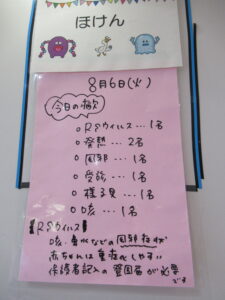 ほけん
8月6日(火)
今日の欠
○ RSウイルス…1名
○ 発熱 … 2名
○ 風邪 … 1名
○ 受診 … 1名
○ 様子見 … 1名
○ 咳 … 1名
【RSウイルス】
咳・鼻水などの風邪症状
赤ちゃんは重症化しやすい
保護者記入の登園届が必要です